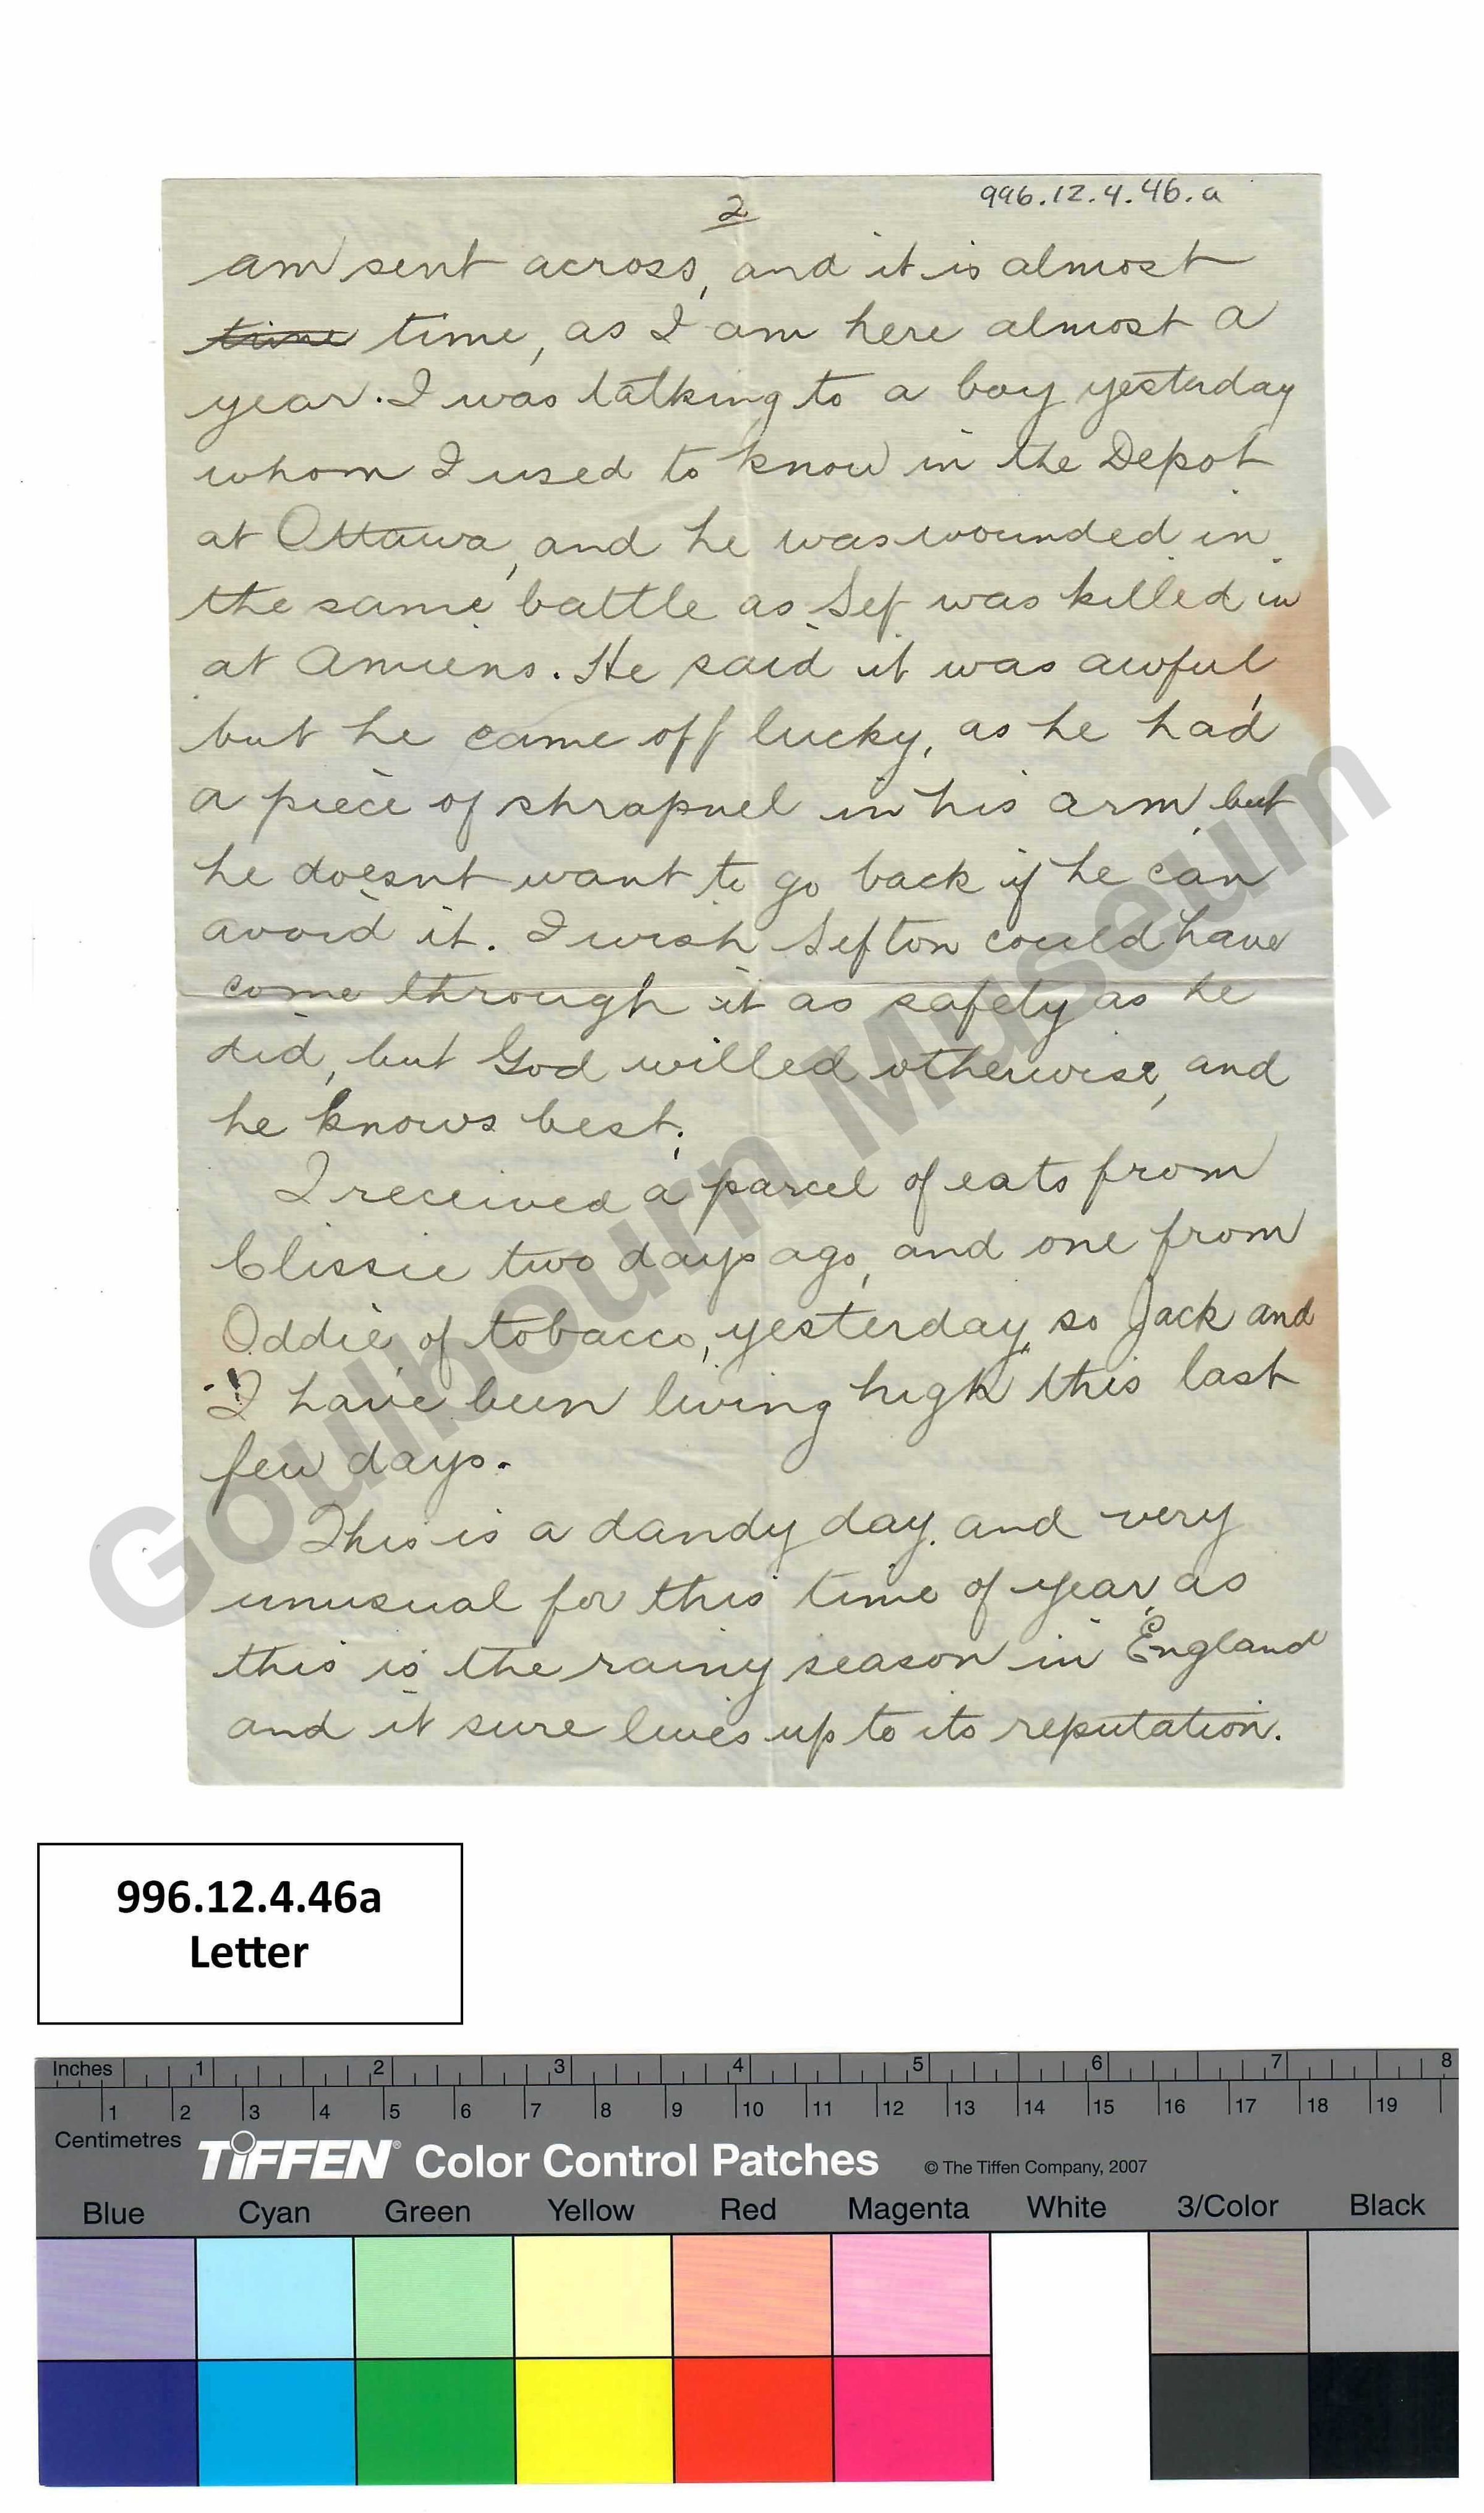 2
996.12.4.46.a
am sent across, and it is almost
time time, as I am here almost a
year. I was talking to a boy yesterday
whom I used to know in the Depot
at Ottawa, and he was wounded in
the same battle as Sef was killed in
at Amiens. He said it was awful,
but he came off lucky, as he had
a piece of shrapnel in his arm, but
he doesnt want to go back if he can
avoid it. I wish Sefton could have
come through it as safely as he
did, but God willed otherwise, and
he knows best.
I received a parcel of eats from
Clissie two days ago, and one from
Oddie of tobacco, yesterday, so Jack and
I have been living high this last
few days.
This is a dandy day, and very
unusual for this time of year, as
this is the rainy season in England
and it sure lives up to its reputation.
Goulbourn Museum
996.12.4.46a
Letter
Inches 1 2 3 4 5 6 7 8
1 2 3 4 5 6 7 8 9 10 11 12 13 14 15 16 17 18 19
Centimetres
TIFFEN® Color Control Patches © The Tiffen Company, 2007
Blue Cyan Green Yellow Red Magenta White 3/Color Black